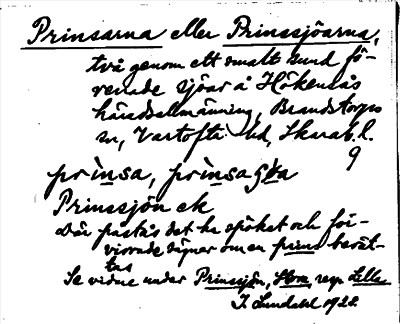 Prinsarna eller Prinssjöarna,
två genom ett smalt sund för-
enade sjöar å Hökensås
häradsallmänning, Brandstorps
sn, Vartofta hd, Skarab. l.
9
prinsa, prinsa
Prinssjön ek
Där påstås det ha spökat och för-
virrade sägner om en prins berät-
tas
Se vidare under Prinssjön, Stora, resp. Lilla
I. Lundahl 1928.